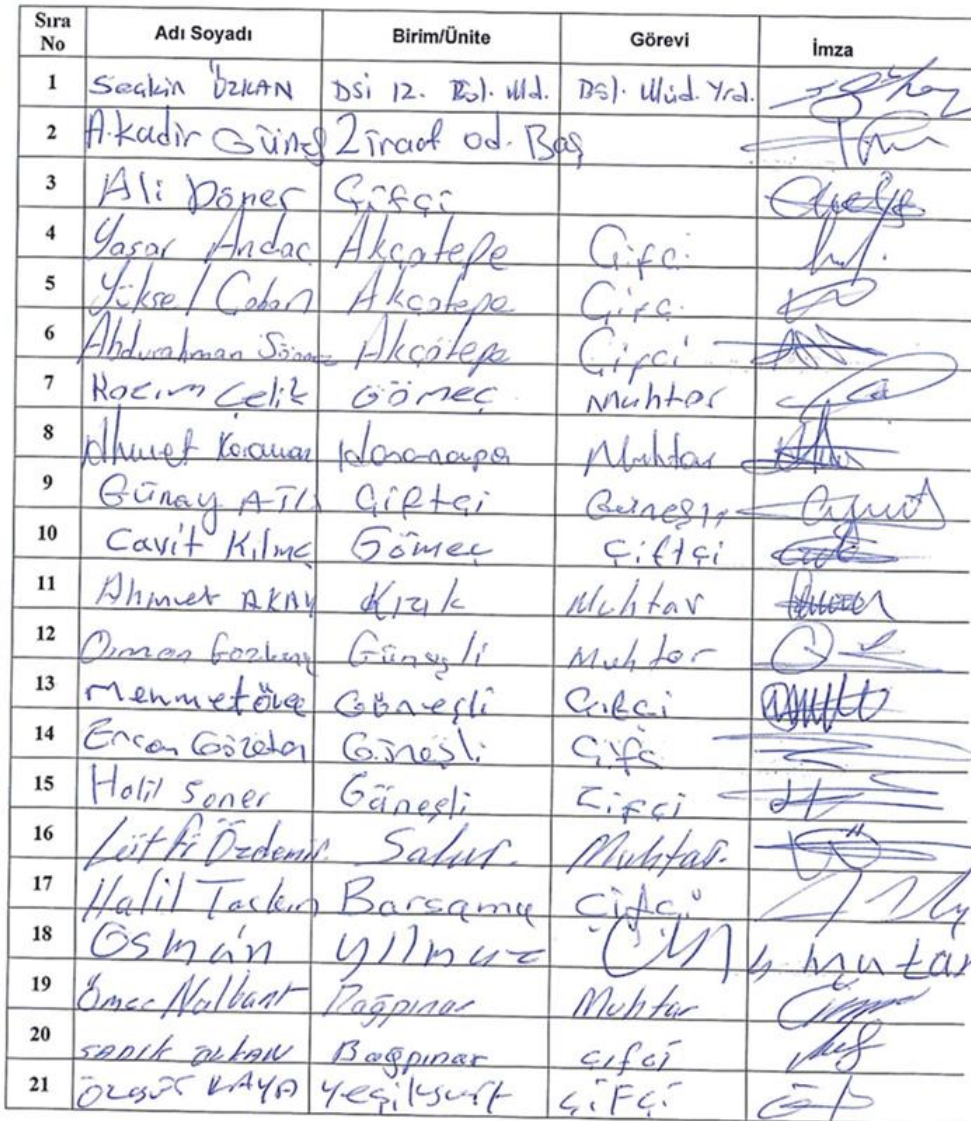 Sıra No Adı Soyadı Birim/Ünite Görevi İmza
1 Seçkin ÖZKAN DSİ 12. Böl. Md. Böl. Müd. Yrd.
2 A.kadir Güneş Ziraat od. Baş
3 Ali Döner Çifçi
4 Yaşar Andaç Akçatepe Çifçi
5 Yüksel Çoban Akçatepe Çifçi
6 Abdurahman Akçatepe Çifçi
7 Kazım Çelik Gömeç Muhtar
8 Ahmet Karaman Muhtar
9 Günay Çiftçi Güneşli
10 Cavit Kılınç Gömeç Çiftçi
11 Ahmet AKAY Kızık Muhtar
12 Osman Güneşli Muhtar
13 Mehmet Güneşli Çifçi
14 Ercan Güneşli Çifç
15 Halil Soner Güneşli Çifçi
16 Lütfi Özdemir Salur. Muhtar.
17 Halil Taşkın Barsama Çifçi
18 Osman Yılmaz Mutar
19 Ömer Nalbant Bağpınar Muhtar
20 SADIK Bağpınar çifçi
21 Özgür KAYA Yeşilyurt Çifçi